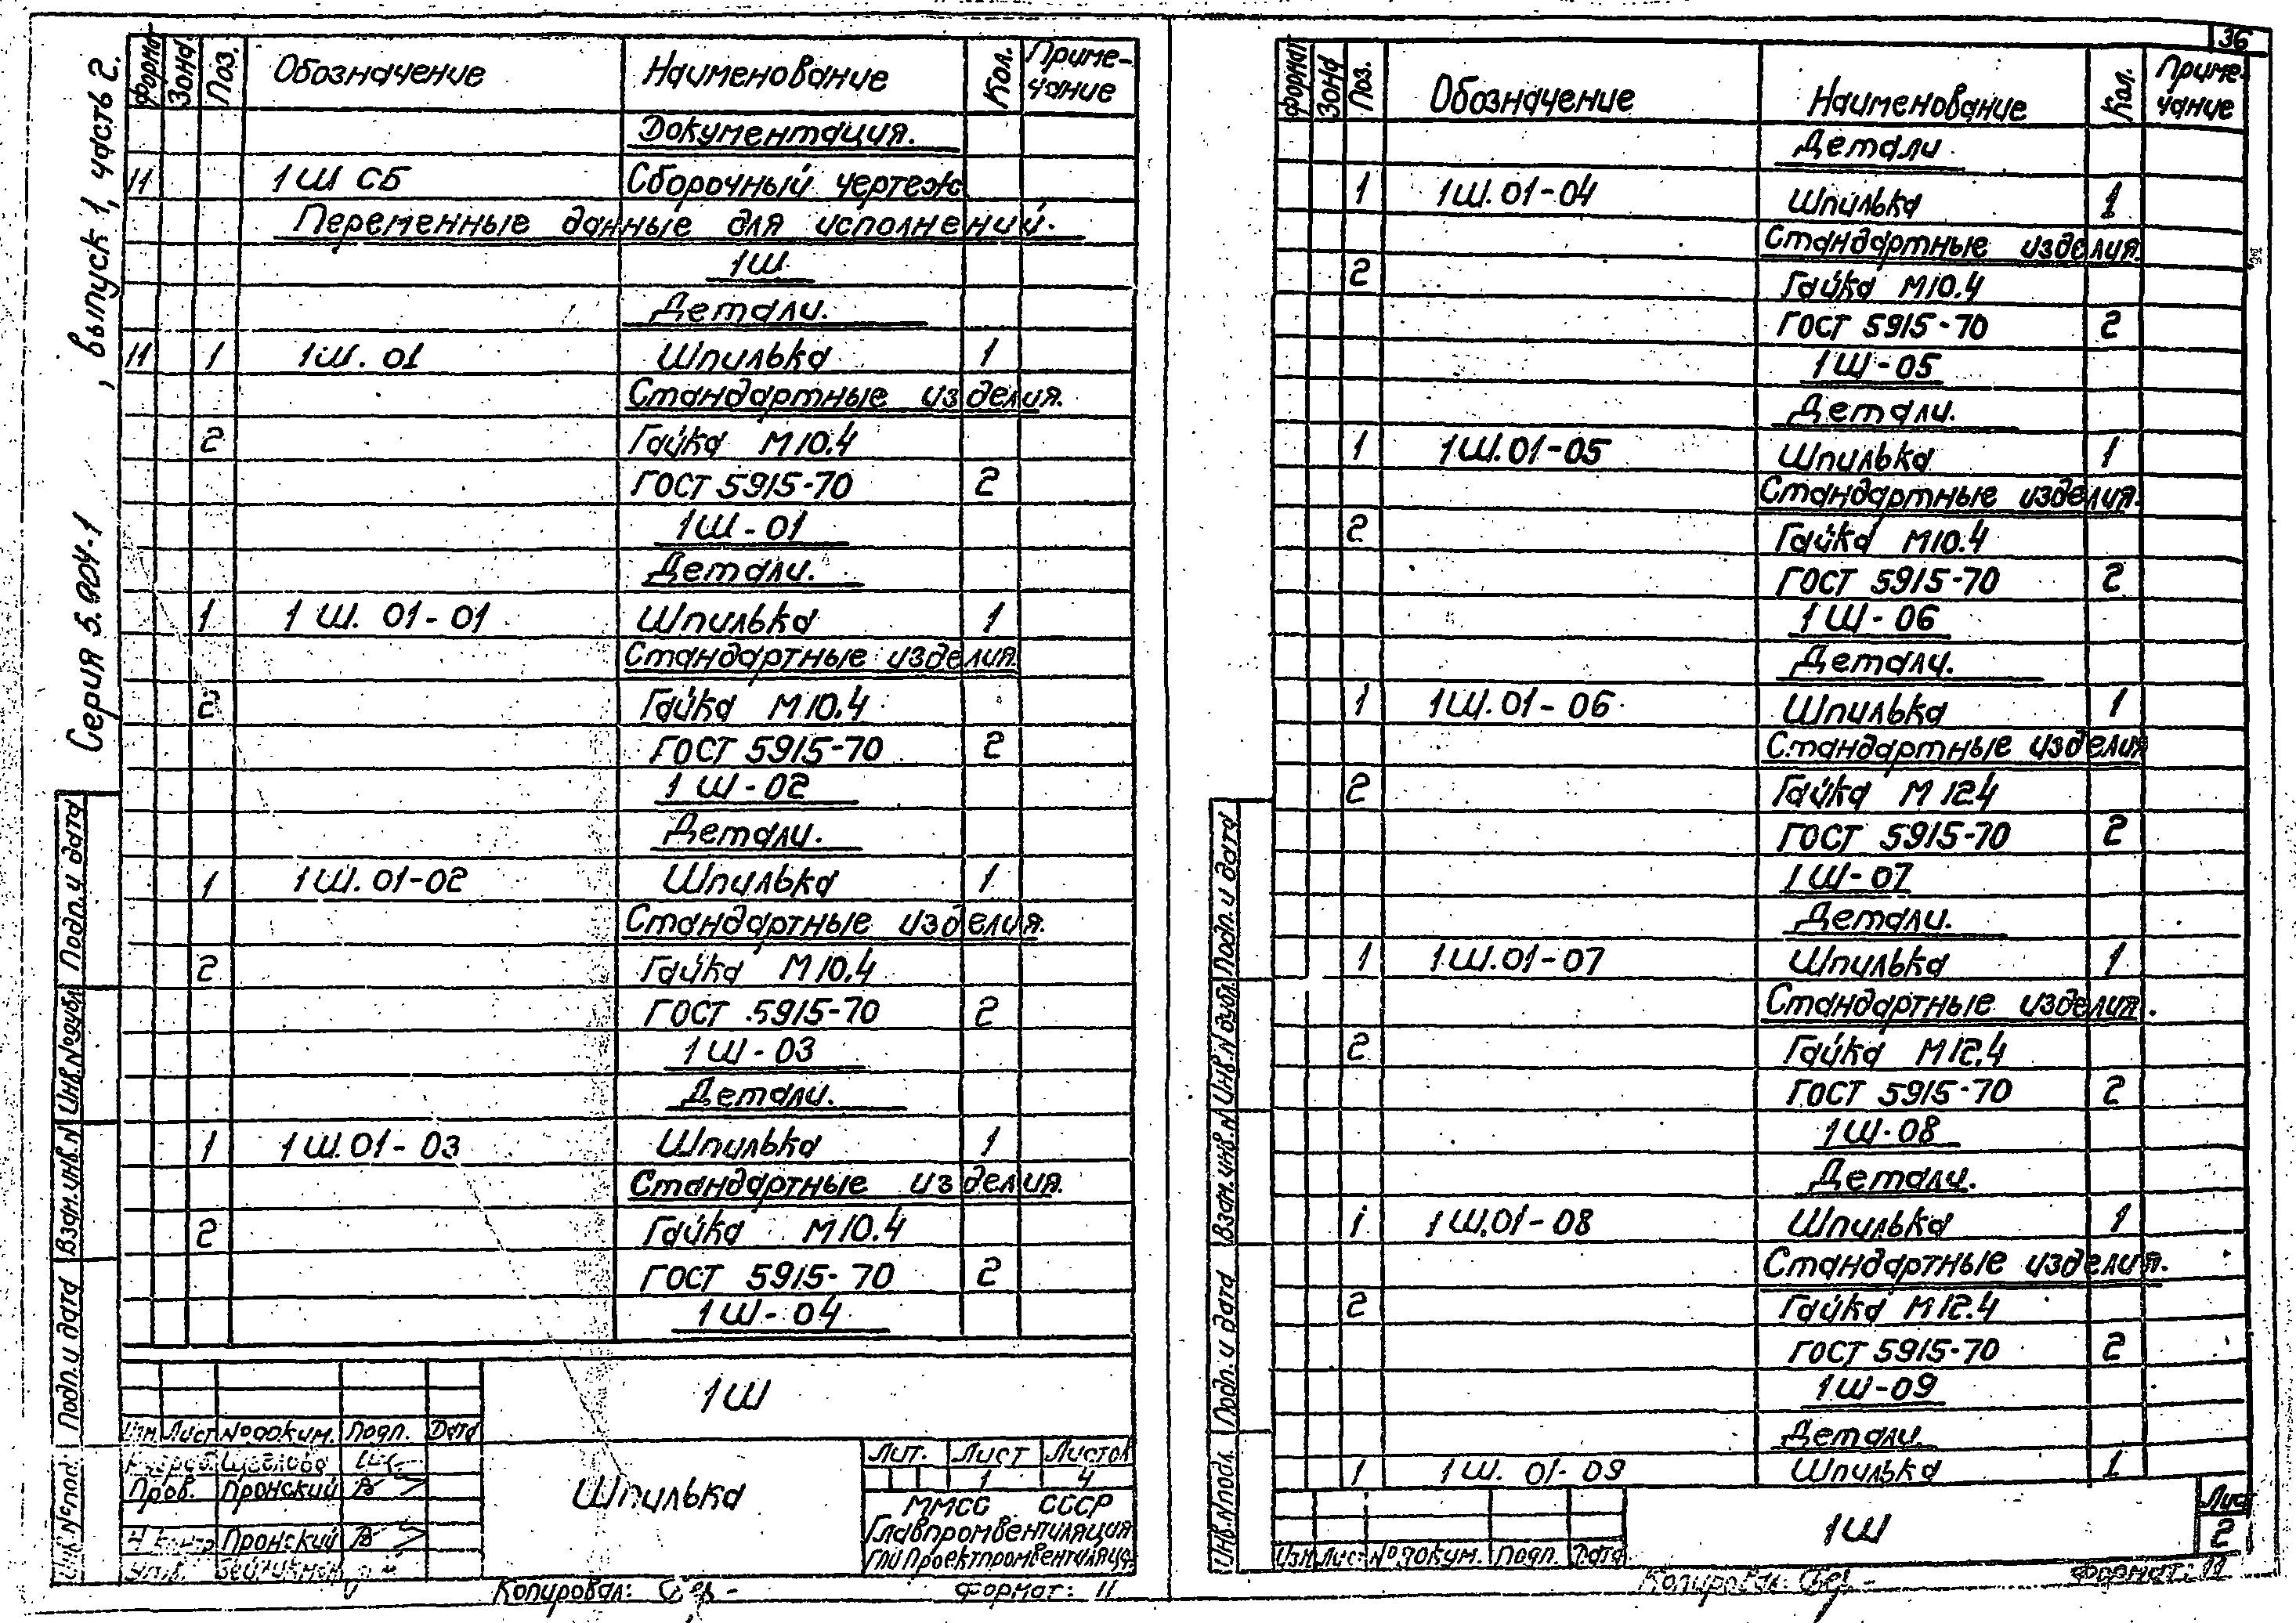 Серия 5.904-1 , выпуск 1, часть 2.
Форма Зона Поз. Обозначение Наименование Кол. Приме-
чание
Документация.
11 1Ш СБ Сборочный чертеж
Переменные данные для исполнений.
1Ш
Детали.
11 1 1Ш. 01 Шпилька 1
Стандартные изделия.
2 Гайка М10.4
ГОСТ 5915-70 2
1Ш-01
Детали.
1 1Ш. 01-01 Шпилька 1
Стандартные изделия.
2 Гайка М10.4
ГОСТ 5915-70 2
1Ш-02
Детали.
1 1Ш. 01-02 Шпилька 1
Стандартные изделия.
2 Гайка М10.4
ГОСТ 5915-70 2
1Ш-03
Детали.
1 1Ш.01-03 Шпилька 1
Стандартные изделия.
2 Гайка М10.4
ГОСТ 5915-70 2
1Ш-04
Подп. и дата
Инв.№дубл.
Взам.инв.N
Подп. и дата
Инв.№подл.
1Ш
Изм. Лист №докум. Подп. Дата
Разраб. Щеглова
Пров. Пронский
Н.контр. Пронский
Утв.
Шпилька
Лит. Лист Листов
1 4
ММСС СССР
Главпромвентиляция
ГПИ Проектпромвентиляция
Копировал: Формат: 11
36
Формат Зона Поз. Обозначение Наименование Кол. Приме-
чание
Детали
1 1Ш.01-04 Шпилька 1
Стандартные изделия.
2 Гайка М10.4
ГОСТ 5915-70 2
1Ш-05
Детали.
1 1Ш.01-05 Шпилька 1
Стандартные изделия.
2 Гайка М10.4
ГОСТ 5915-70 2
1Ш-06
Детали.
1 1Ш.01-06 Шпилька 1
Стандартные изделия
2 Гайка М12.4
ГОСТ 5915-70 2
1Ш-07
Детали.
1 1Ш.01-07 Шпилька 1
Стандартные изделия.
2 Гайка М12.4
ГОСТ 5915-70 2
1Ш-08
Детали.
1 1Ш.01-08 Шпилька 1
Стандартные изделия.
2 Гайка М12.4
ГОСТ 5915-70 2
1Ш-09
Детали.
1 1Ш. 01-09 Шпилька 1
Подп. и дата
Инв.N дубл.
Взам.инв.N
Подп. и дата
Инв.Nподл.
Изм Лист №докум. Подп. Дата
1Ш
Лист
2
Копировал: Формат: 11